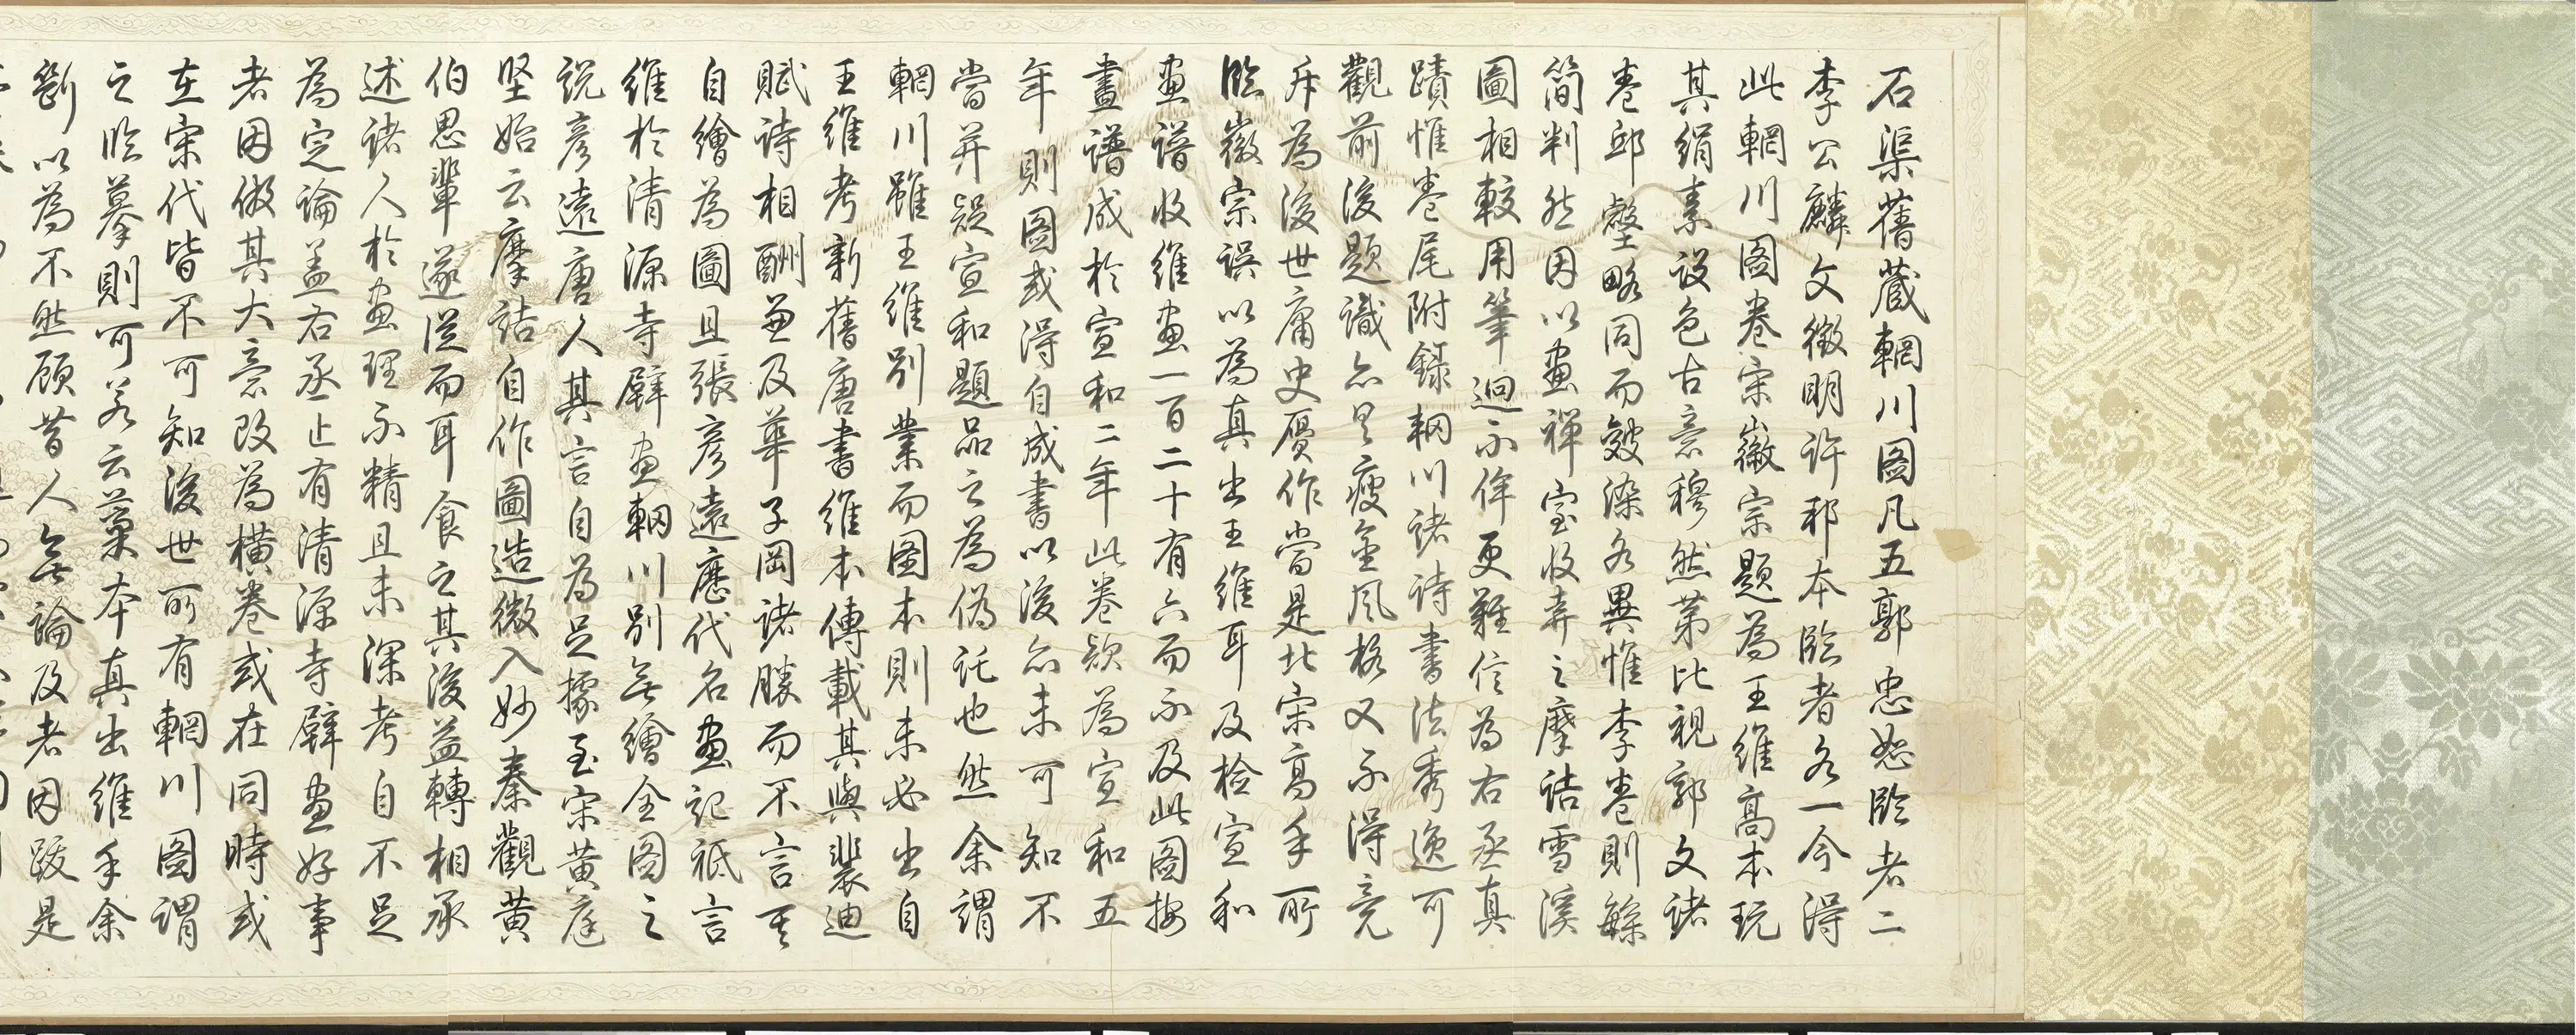 石渠舊藏輞川圖凡五郭忠恕臨者二
李公麟文徵明許邦本臨者各一今得
此輞川圖卷宋徽宗題為王維高本玩
其絹素設色古意穆然第比視郭文諸
卷邱壑略同而皴染各異惟李卷則繇
簡判然因以畫禪室收弆之摩詰雪溪
圖相較用筆迥不侔更難信為右丞真
蹟惟卷尾附錄輞川諸詩書法秀逸可
觀前後題識亦具瘦金風格又不得竟
斥為後世庸史贋作當是北宋高手所
臨徽宗誤以為真出王維耳及檢宣和
畫譜收維畫一百二十有六而不及此圖按
畫譜成於宣和二年此卷款為宣和五
年則圖或得自成書以後亦未可知不
當并疑宣和題品之為偽託也然余謂
輞川雖王維別業而圖本則未必出自
王維考新舊唐書維本傳載其與裴迪
賦詩相酬並及華子岡諸勝而不言其
自繪為圖且張彥遠歷代名畫記祗言
維於清源寺壁畫輞川別無繪全圖之
說彥遠唐人其言自為足據至宋黃庭
堅始云摩詰自作圖造微入妙秦觀黃
伯思輩遂從而耳食之其後益轉相承
述諸人於畫理不精且未深考自不足
為定論蓋右丞止有清源寺壁畫好事
者因倣其大意改為橫卷或在同時或
在宋代皆不可知後世所有輞川圖謂
之臨摹則可若云藁本真出維手余
斷以為不然顧昔人無論及者因跋是